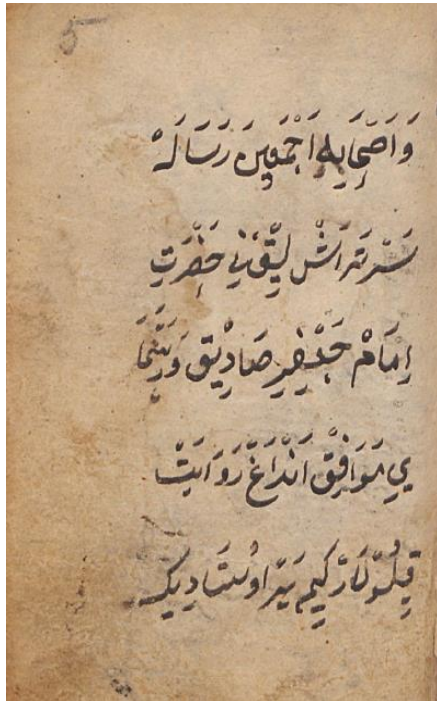 5
وَاَصْحَابِهِ اَجْمَعِينَ رَسَالَهْ
سَرْتَرَاشْ لِيقْنِي حَضْرَتِ
اِمَامْ جَعْفَرِ صَادِيْق
يِ مَوَافِقْ اَنْدَاغْ رَوَايَتْ
قِيلُورْلَارْ كِيم بَيرْ اوُسْتَادِيك